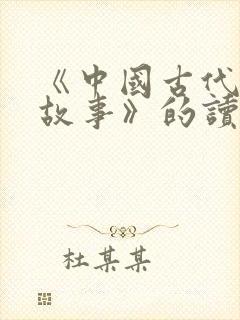 《中國古代
故事》的讀
杜某某